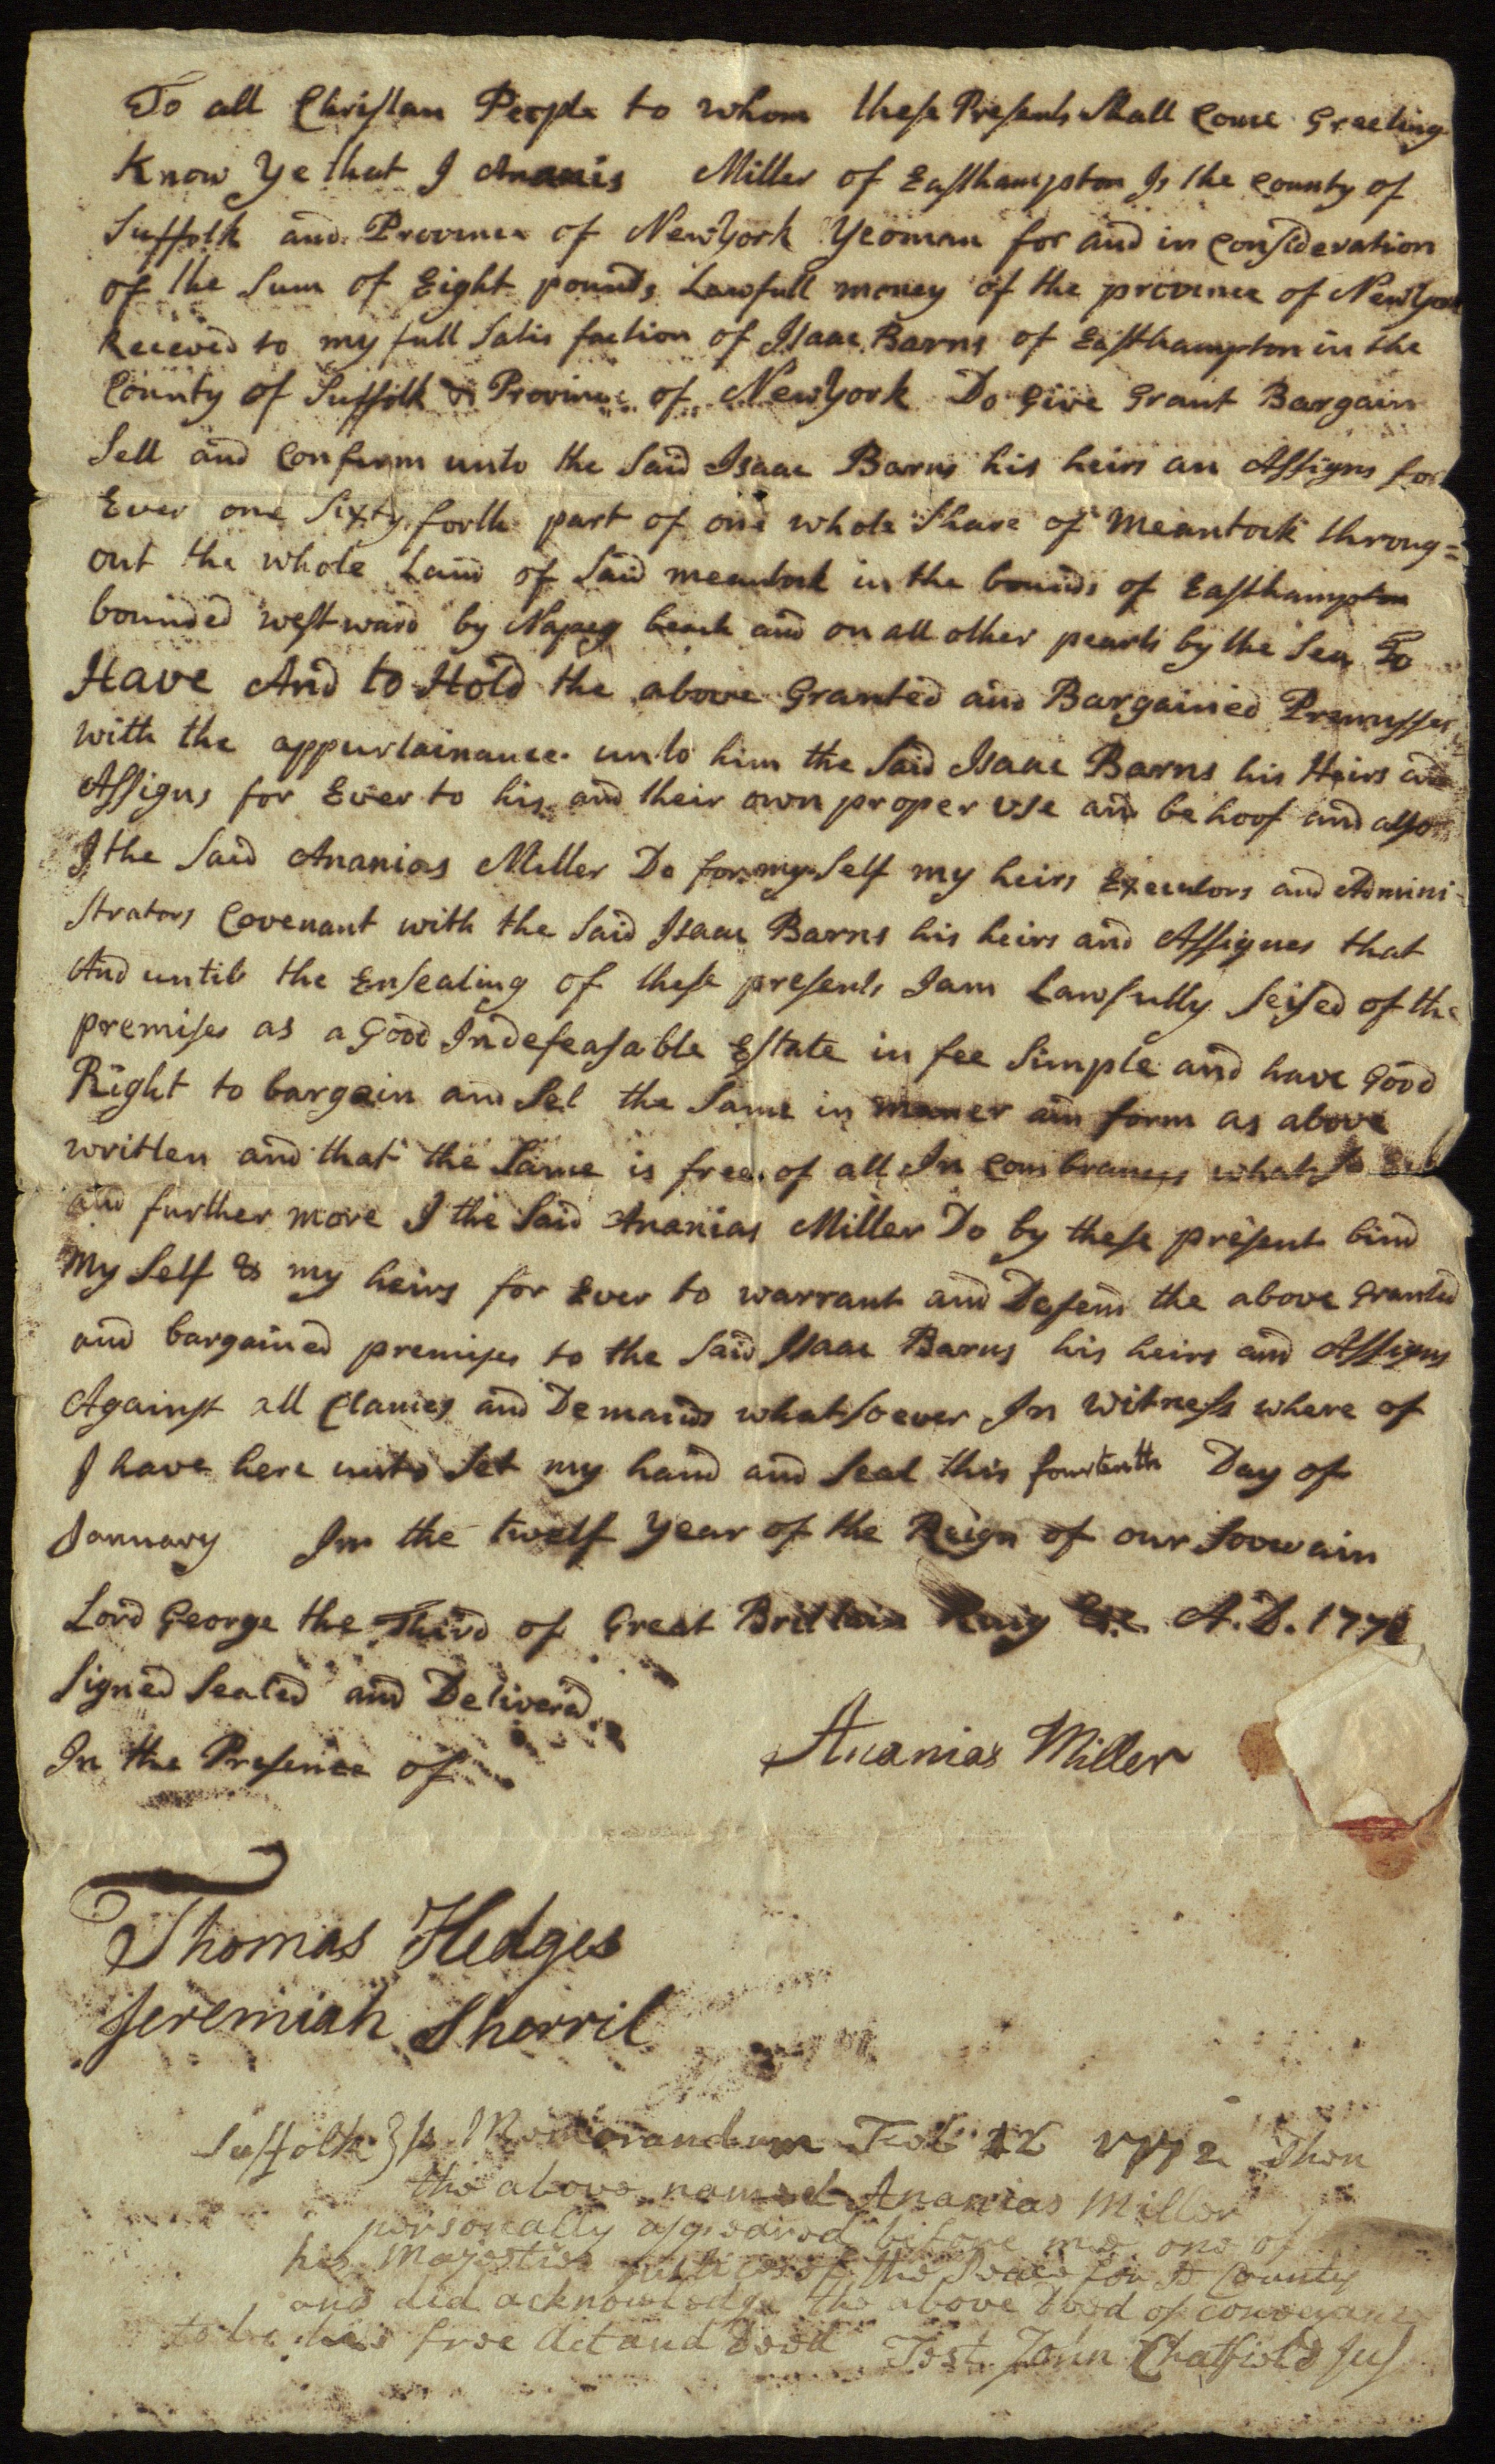 To all Christan People to whom these Presents Shall Come Greeting
Know Ye that I Ananis Miller of Easthampton In the County of
Suffolk and Province of NewYork Yeoman for and in Consideration
of the Sum of Eight pounds Lawfull money of the province of NewYork
Recieved to my full Satis faction of Isaac Barns of Easthampton in the
County of Suffolk & Province of NewYork Do Give Grant Bargain
Sell and Confirm unto the Said Isaac Barns his heirs an Assigns for
Ever one Sixty forth part of one whole Share of Meantock throug=
out the whole Land of Said meantock in the bounds of Easthampton
bounded westward by Napeg beach and on all other pearts by the Sea To
Have And to Hold the above Granted and Bargained Premisses
with the appurtainance unto him the Said Isaac Barns his Heirs and
Assigns for Ever to his and their own proper use and behoof and also
I the Said Ananias Miller Do for my Self my heirs Executors and Admini-
Strators Covenant with the Said Isaac Barns his heirs and Assignes that
And until the Ensealing of these presents I am Lawfully Seised of the
premises as a Good Indefeasable Estate in fee Simple and have Good
Right to bargain and Sel the Same in maner an form as above
written and that the Same is free of all In Combrances what So
and further more I the Said Ananias Miller Do by these present bind
My Self & my heirs for Ever to warrant and Defend the above Granted
and bargained premises to the Said Isaac Barns his heirs and Assigns
Against all Clames and Demands whatsoever In Witness where of
I have here unto Set my hand and Seal this fourtenth Day of
January In the twelf Year of the Reign of our Soverain
Lord George the Third of Great Brittain King &c. A.D. 1772
Signed Sealed and Delivered
In the Presence of
Ananias Miller
Thomas Hedges
Jeremiah Sherril
Suffolk } ss Memorandum Feb 12 1772 Then
the above named Ananias Miller
personally appeared before me one of
his Majesties Justices of the Peace for sd County
and did acknowledge the above Deed of conveyance
to be his free Act and Deed Test John Chatfield Jus